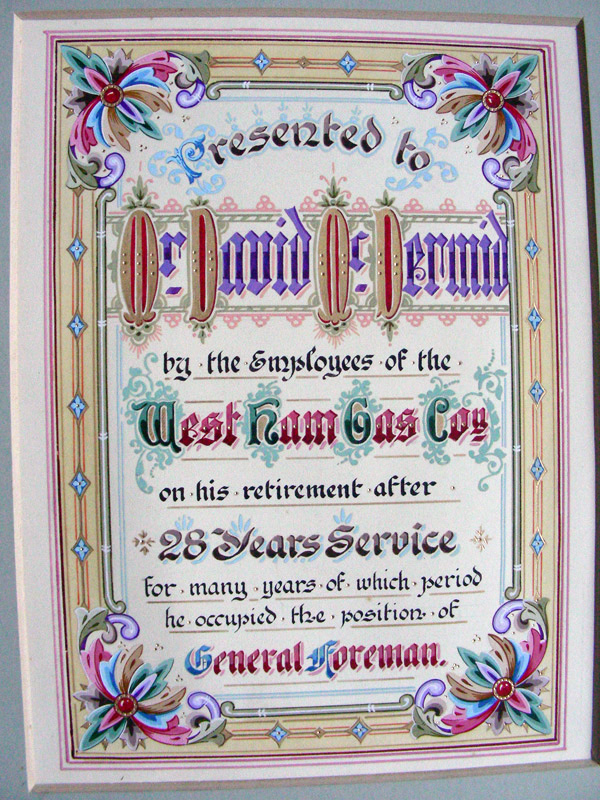 Presented to
Mr. David Mc. Dermid
by the Employees of the
West Ham Gas Coy
on his retirement after
28 Years Service
for many years of which period
he occupied the position of
General Foreman.